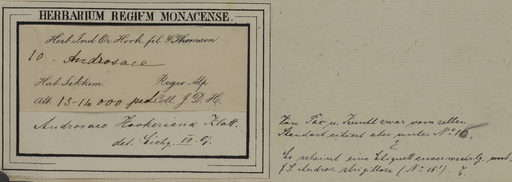 HERBARIUM REGIUM MONACENSE.
Herb. Ind. Or. Hook. fil. & Thomson
10. Androsace
Hab. Sikkim Regio Alp
Alt. 13-14000 ped. Coll. J. D. H.
Androsace Hookeriana Klatt.
det.
Von Pax u. Knuth zwar vom selben
Standort citiert aber unter No.
Es scheint eine Etiquett
Andros. strigillosa (No. 18?)